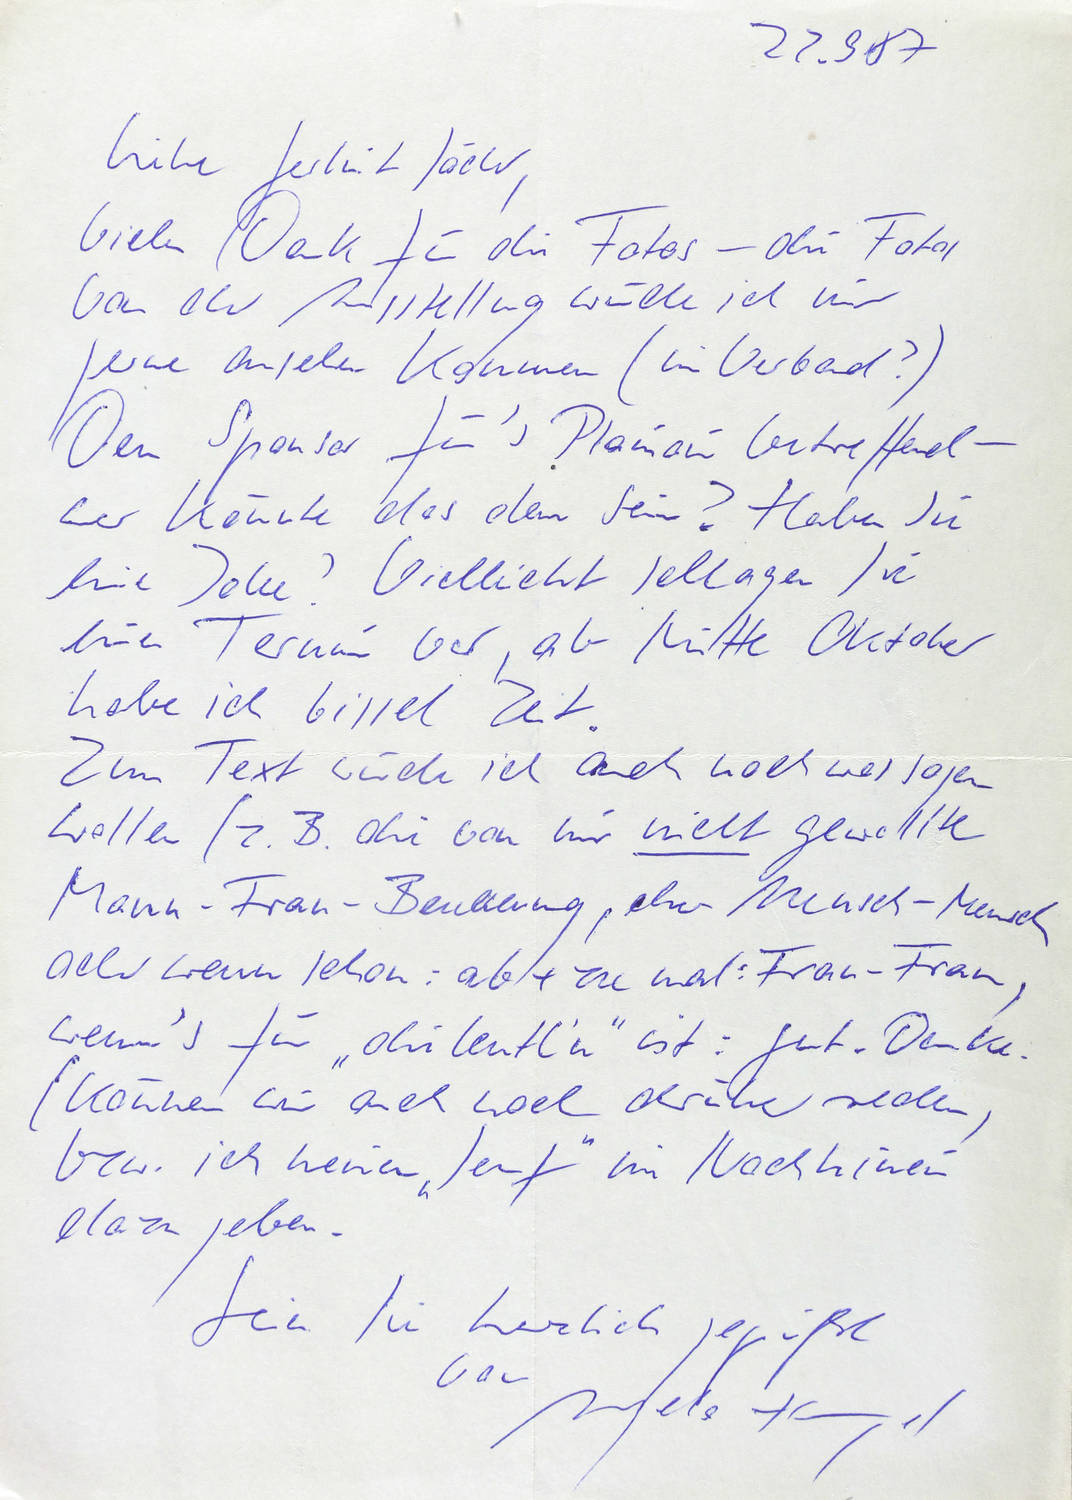 22.9.87
Liebe Gerlint Söder,
vielen Dank für die Fotos – die Fotos
von der Ausstellung würde ich mir
gerne ansehen kommen (im Verband?)
Den Sponsor für's Plainair betreffend –
wer könnte das denn sein? Haben Sie
eine Idee? Vielleicht schlagen Sie
einen Termin vor, ab Mitte Oktober
habe ich bissel Zeit.
Zum Text würde ich auch noch was sagen
wollen (z. B. die von mir nicht gewollte
Mann-Frau-Beziehung, eher Mensch-Mensch
oder wenn schon: ab + zu mal: Frau-Frau,
wenn's für „die" ist: gut. Danke.
(Können wir auch noch drüber reden,
bzw. ich meinen „Senf" im Nachhinein
dazu geben.
Seien Sie herzlich gegrüßt
von
Angela Hampel